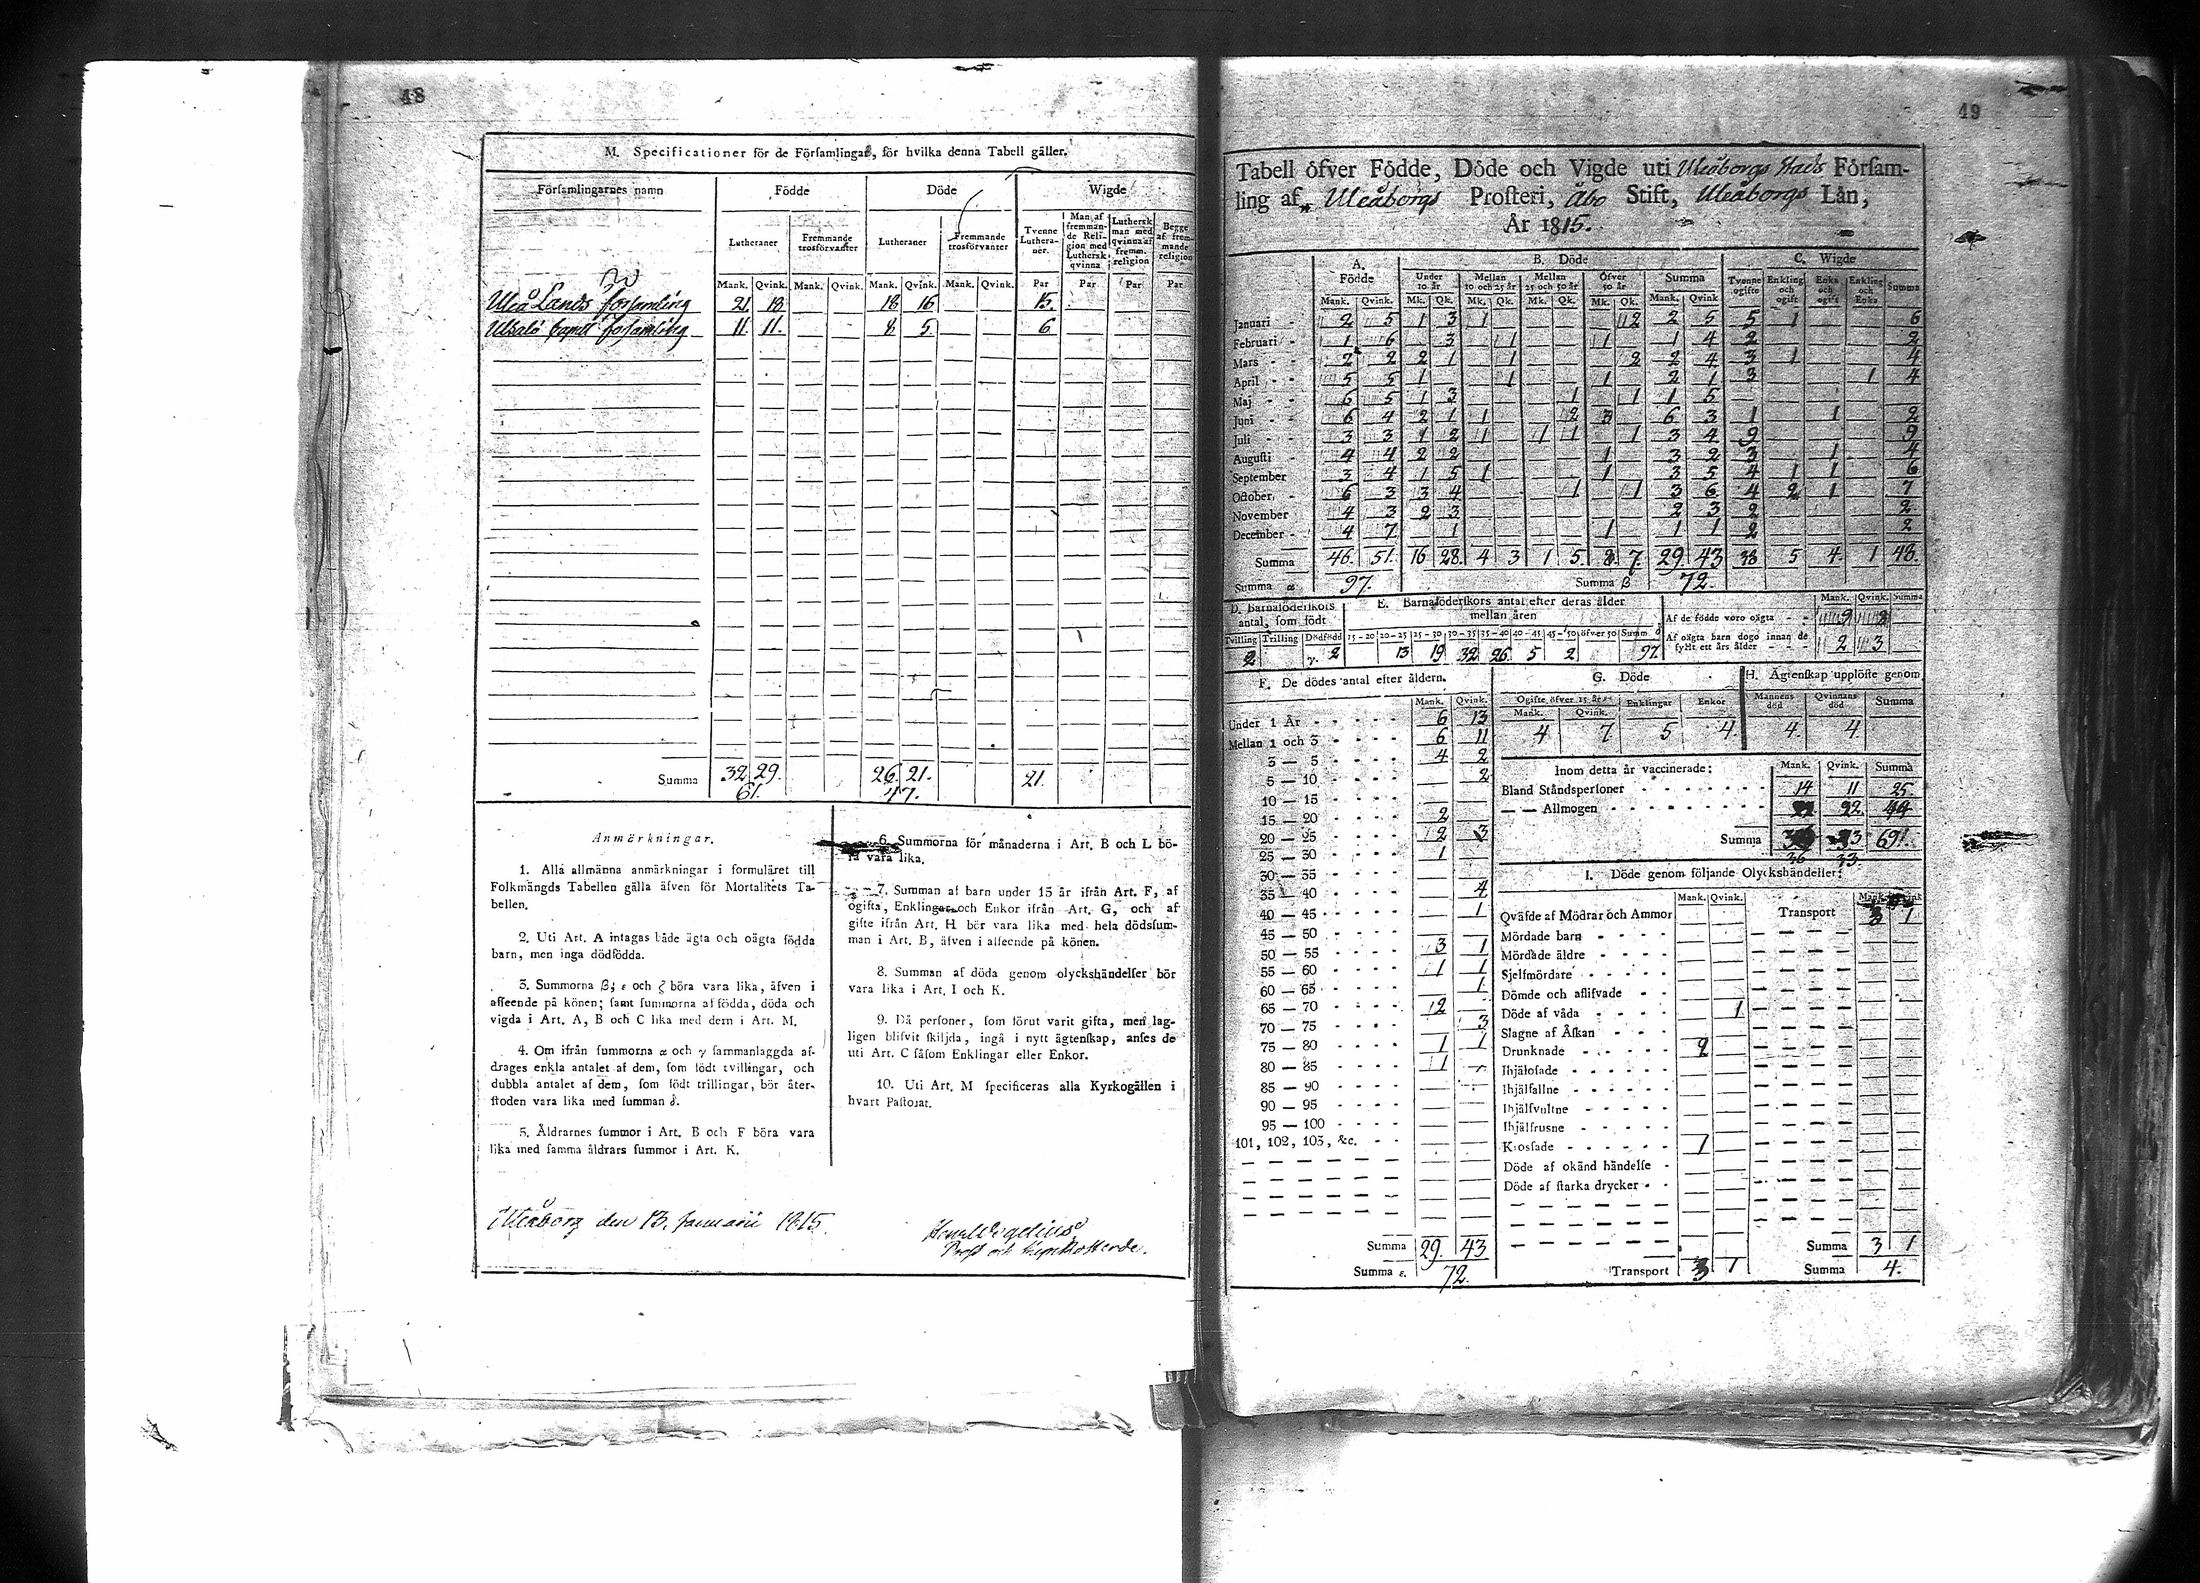 48
M. Specificationer för de Församlingar, för hvilka denna Tabell gäller.
Församlingarnes namn Födde Döde Wigde
Lutheraner Fremmande trosförvanter Lutheraner Fremmande trosförvanter Tvenne Lutheraner. Man af fremmande Religion med Luthersk qvinna Luthersk man med qvinna af fremm. religion Begge af fremmande religion
Mank. Qvink. Mank. Qvink. Mank. Qvink. Mank. Qvink. Par Par Par Par
Uleå Lands församling 21 18 18 16 15.
församling 11 11. 8 5 6
Summa 32 29. 26. 21. 21.
61. 47.
Anmärkningar.
1. Alla allmänna anmärkningar i formuläret till
Folkmängds Tabellen gälla äfven för Mortalitets Ta-
bellen.
2. Uti Art. A intagas både ägta och oägta födda
barn, men inga dödfödda.
3. Summorna β, ε och ζ böra vara lika, äfven i
afseende på könen; samt summorna af födda, döda och
vigda i Art. A, B och C lika med dem i Art. M.
4. Om ifrån summorna α och γ sammanlaggda af-
drages enkla antalet af dem, som födt tvillingar, och
dubbla antalet af dem, som födt trillingar, bör åter-
stoden vara lika med summan δ.
5. Åldrarnes summor i Art. B och F böra vara
lika med samma åldrars summor i Art. K.
6. Summorna för månaderna i Art. B och L bö-
ra vara lika.
7. Summan af barn under 15 år ifrån Art. F, af
ogifta, Enklingar och Enkor ifrån Art. G, och af
gifte ifrån Art. H bör vara lika med hela dödssum-
man i Art. B, äfven i afseende på könen.
8. Summan af döda genom olyckshändelser bör
vara lika i Art. I och K.
9. Då personer, som förut varit gifta, men lag-
ligen blifvit skiljda, ingå i nytt ägtenskap, anses de
uti Art. C såsom Enklingar eller Enkor.
10. Uti Art. M specificeras alla Kyrkogällen i
hvart Pastorat.
Uleåborg den 13. Januarii 1815.
49
Tabell öfver Födde, Döde och Vigde uti Uleåborgs Stads Församling
af Uleåborgs Prosteri, Åbo Stift, Uleåborgs Län,
År 1815.
A. Födde B. Döde C. Wigde
Under 10 år Mellan 10 och 25 år Mellan 25 och 50 år Öfver 50 år Summa Tvenne ogifte Enkling och ogift Enka och ogift Enkling och Enka Summa
Mank. Qvink. Mk. Qk. Mk. Qk. Mk. Qk. Mk. Qk. Mank. Qvink
Januari 2 5 1 3 1 2 2 5 5 1 6
Februari 1 6 3 1 1 1 4 2 2
Mars 2 2 2 1 1 2 2 4 3 1 4
April 5 5 1 1 1 2 1 3 1 4
Maj 6 5 1 3 1 1 1 5
Juni 6 4 2 1 1 2 3 6 3 1 1 2
Juli 3 3 1 2 1 1 1 1 3 4 9 9
Augusti 4 4 2 2 1 3 2 3 1 4
September 3 4 1 5 1 1 3 5 4 1 1 6
October 6 3 3 4 1 1 3 6 4 2 1 7
November 4 3 2 3 2 3 2 2
December 4 7 1 1 1 1 2 2
Summa 46. 51. 16 28. 4 3 1 5. 8. 7. 29. 43 38 5 4. 1 48.
Summa α 97. Summa β 72.
D. Barnaföderskors antal, som födt
Tvilling Trilling Dödfödd
2 γ. 2
E. Barnaföderskors antal efter deras ålder mellan åren
15-20 20-25 25-30 30-35 35-40 40-45 45-50 öfver 50 Summ δ
13 19 32 26 5 2 97.
Mank. Qvink. Summa
Af de födde voro oägta
Af oägta barn dogo innan de fyllt ett års ålder 2 3
F. De dödes antal efter åldern.
Mank. Qvink.
Under 1 År 6 13
Mellan 1 och 3 6 11
3 — 5 4 2
5 — 10 2
10 — 15
15 — 20 2
20 — 25 2 3
25 — 30 1
30 — 35
35 — 40 4
40 — 45 1
45 — 50
50 — 55 3 1
55 — 60 1 1
60 — 65 1
65 — 70 2
70 — 75 3
75 — 80 1 1
80 — 85 1
85 — 90
90 — 95
95 — 100
101, 102, 103, &c.
Summa 29. 43
Summa ε. 72.
G. Döde
Ogifte öfver 15 år Enklingar Enkor
Mank. Qvink.
4 7 5 4.
H. Ägtenskap upplöste genom
Mannens död Qvinnans död Summa
4. 4.
Inom detta år vaccinerade: Mank. Qvink. Summa
Bland Ståndspersoner 14 11 25.
— — Allmogen 22 44
Summa 33 69.
36 33.
I. Döde genom följande Olyckshändelser:
Mank. Qvink.
Qväfde af Mödrar och Ammor
Mördade barn
Mördade äldre
Sjelfmördare
Dömde och aflifvade
Döde af våda 1
Slagne af Åskan
Drunknade 2
Ihjälosade
Ihjälfallne
Ihjälsvultne
Ihjälfrusne
Krossade 1
Döde af okänd händelse
Döde af starka drycker
Transport 3 1
Transport 3 1
Summa 3 1
Summa 4.